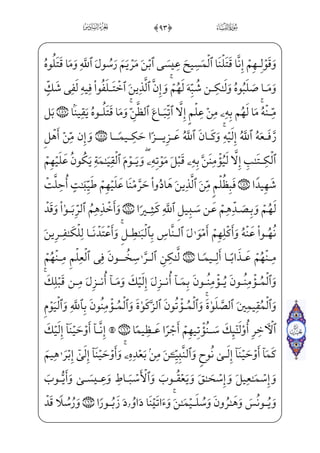 الجزء السادس ﴿٩٣﴾ سورة النساء
وَقَوْلِهِمْ إِنَّا قَتَلْنَا ٱلْمَسِيحَ عِيسَى ٱبْنَ مَرْيَمَ رَسُولَ ٱللَّهِ وَمَا قَتَلُوهُ
وَمَا صَلَبُوهُ وَلَٰكِن شُبِّهَ لَهُمْ ۚ وَإِنَّ ٱلَّذِينَ ٱخْتَلَفُوا۟ فِيهِ لَفِى شَكٍّ
مِّنْهُ ۚ مَا لَهُم بِهِۦ مِنْ عِلْمٍ إِلَّا ٱتِّبَاعَ ٱلظَّنِّ ۚ وَمَا قَتَلُوهُ يَقِينًۢا ١٥٧ بَل
رَّفَعَهُ ٱللَّهُ إِلَيْهِ ۚ وَكَانَ ٱللَّهُ عَزِيزًا حَكِيمًا ١٥٨ وَإِن مِّنْ أَهْلِ
ٱلْكِتَٰبِ إِلَّا لَيُؤْمِنَنَّ بِهِۦ قَبْلَ مَوْتِهِۦ ۖ وَيَوْمَ ٱلْقِيَٰمَةِ يَكُونُ عَلَيْهِمْ
شَهِيدًا ١٥٩ فَبِظُلْمٍ مِّنَ ٱلَّذِينَ هَادُوا۟ حَرَّمْنَا عَلَيْهِمْ طَيِّبَٰتٍ أُحِلَّتْ
لَهُمْ وَبِصَدِّهِمْ عَن سَبِيلِ ٱللَّهِ كَثِيرًا ١٦٠ وَأَخْذِهِمُ ٱلرِّبَوٰا۟ وَقَدْ
نُهُوا۟ عَنْهُ وَأَكْلِهِمْ أَمْوَٰلَ ٱلنَّاسِ بِٱلْبَٰطِلِ ۚ وَأَعْتَدْنَا لِلْكَٰفِرِينَ
مِنْهُمْ عَذَابًا أَلِيمًا ١٦١ لَّٰكِنِ ٱلرَّٰسِخُونَ فِى ٱلْعِلْمِ مِنْهُمْ
وَٱلْمُؤْمِنُونَ يُؤْمِنُونَ بِمَآ أُنزِلَ إِلَيْكَ وَمَآ أُنزِلَ مِن قَبْلِكَ ۚ
وَٱلْمُقِيمِينَ ٱلصَّلَوٰةَ ۚ وَٱلْمُؤْتُونَ ٱلزَّكَوٰةَ وَٱلْمُؤْمِنُونَ بِٱللَّهِ وَٱلْيَوْمِ
ٱلْءَاخِرِ أُو۟لَٰٓئِكَ سَنُؤْتِيهِمْ أَجْرًا عَظِيمًا ١٦٢ ۞ إِنَّآ أَوْحَيْنَآ إِلَيْكَ
كَمَآ أَوْحَيْنَآ إِلَىٰ نُوحٍ وَٱلنَّبِيِّـۧنَ مِنۢ بَعْدِهِۦ ۚ وَأَوْحَيْنَآ إِلَىٰٓ إِبْرَٰهِيمَ
وَإِسْمَٰعِيلَ وَإِسْحَٰقَ وَيَعْقُوبَ وَٱلْأَسْبَاطِ وَعِيسَىٰ وَأَيُّوبَ
وَيُونُسَ وَهَٰرُونَ وَسُلَيْمَٰنَ ۚ وَءَاتَيْنَا دَاوُۥدَ زَبُورًا ١٦٣ وَرُسُلًا قَدْ